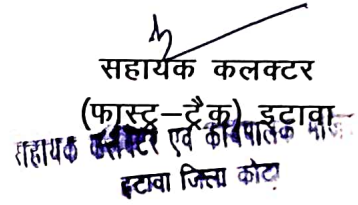 सहायक कलक्टर
(फास्ट-ट्रैक) इटावा
सहायक कलक्टर एवं कार्यपालक
इटावा जिला कोटा